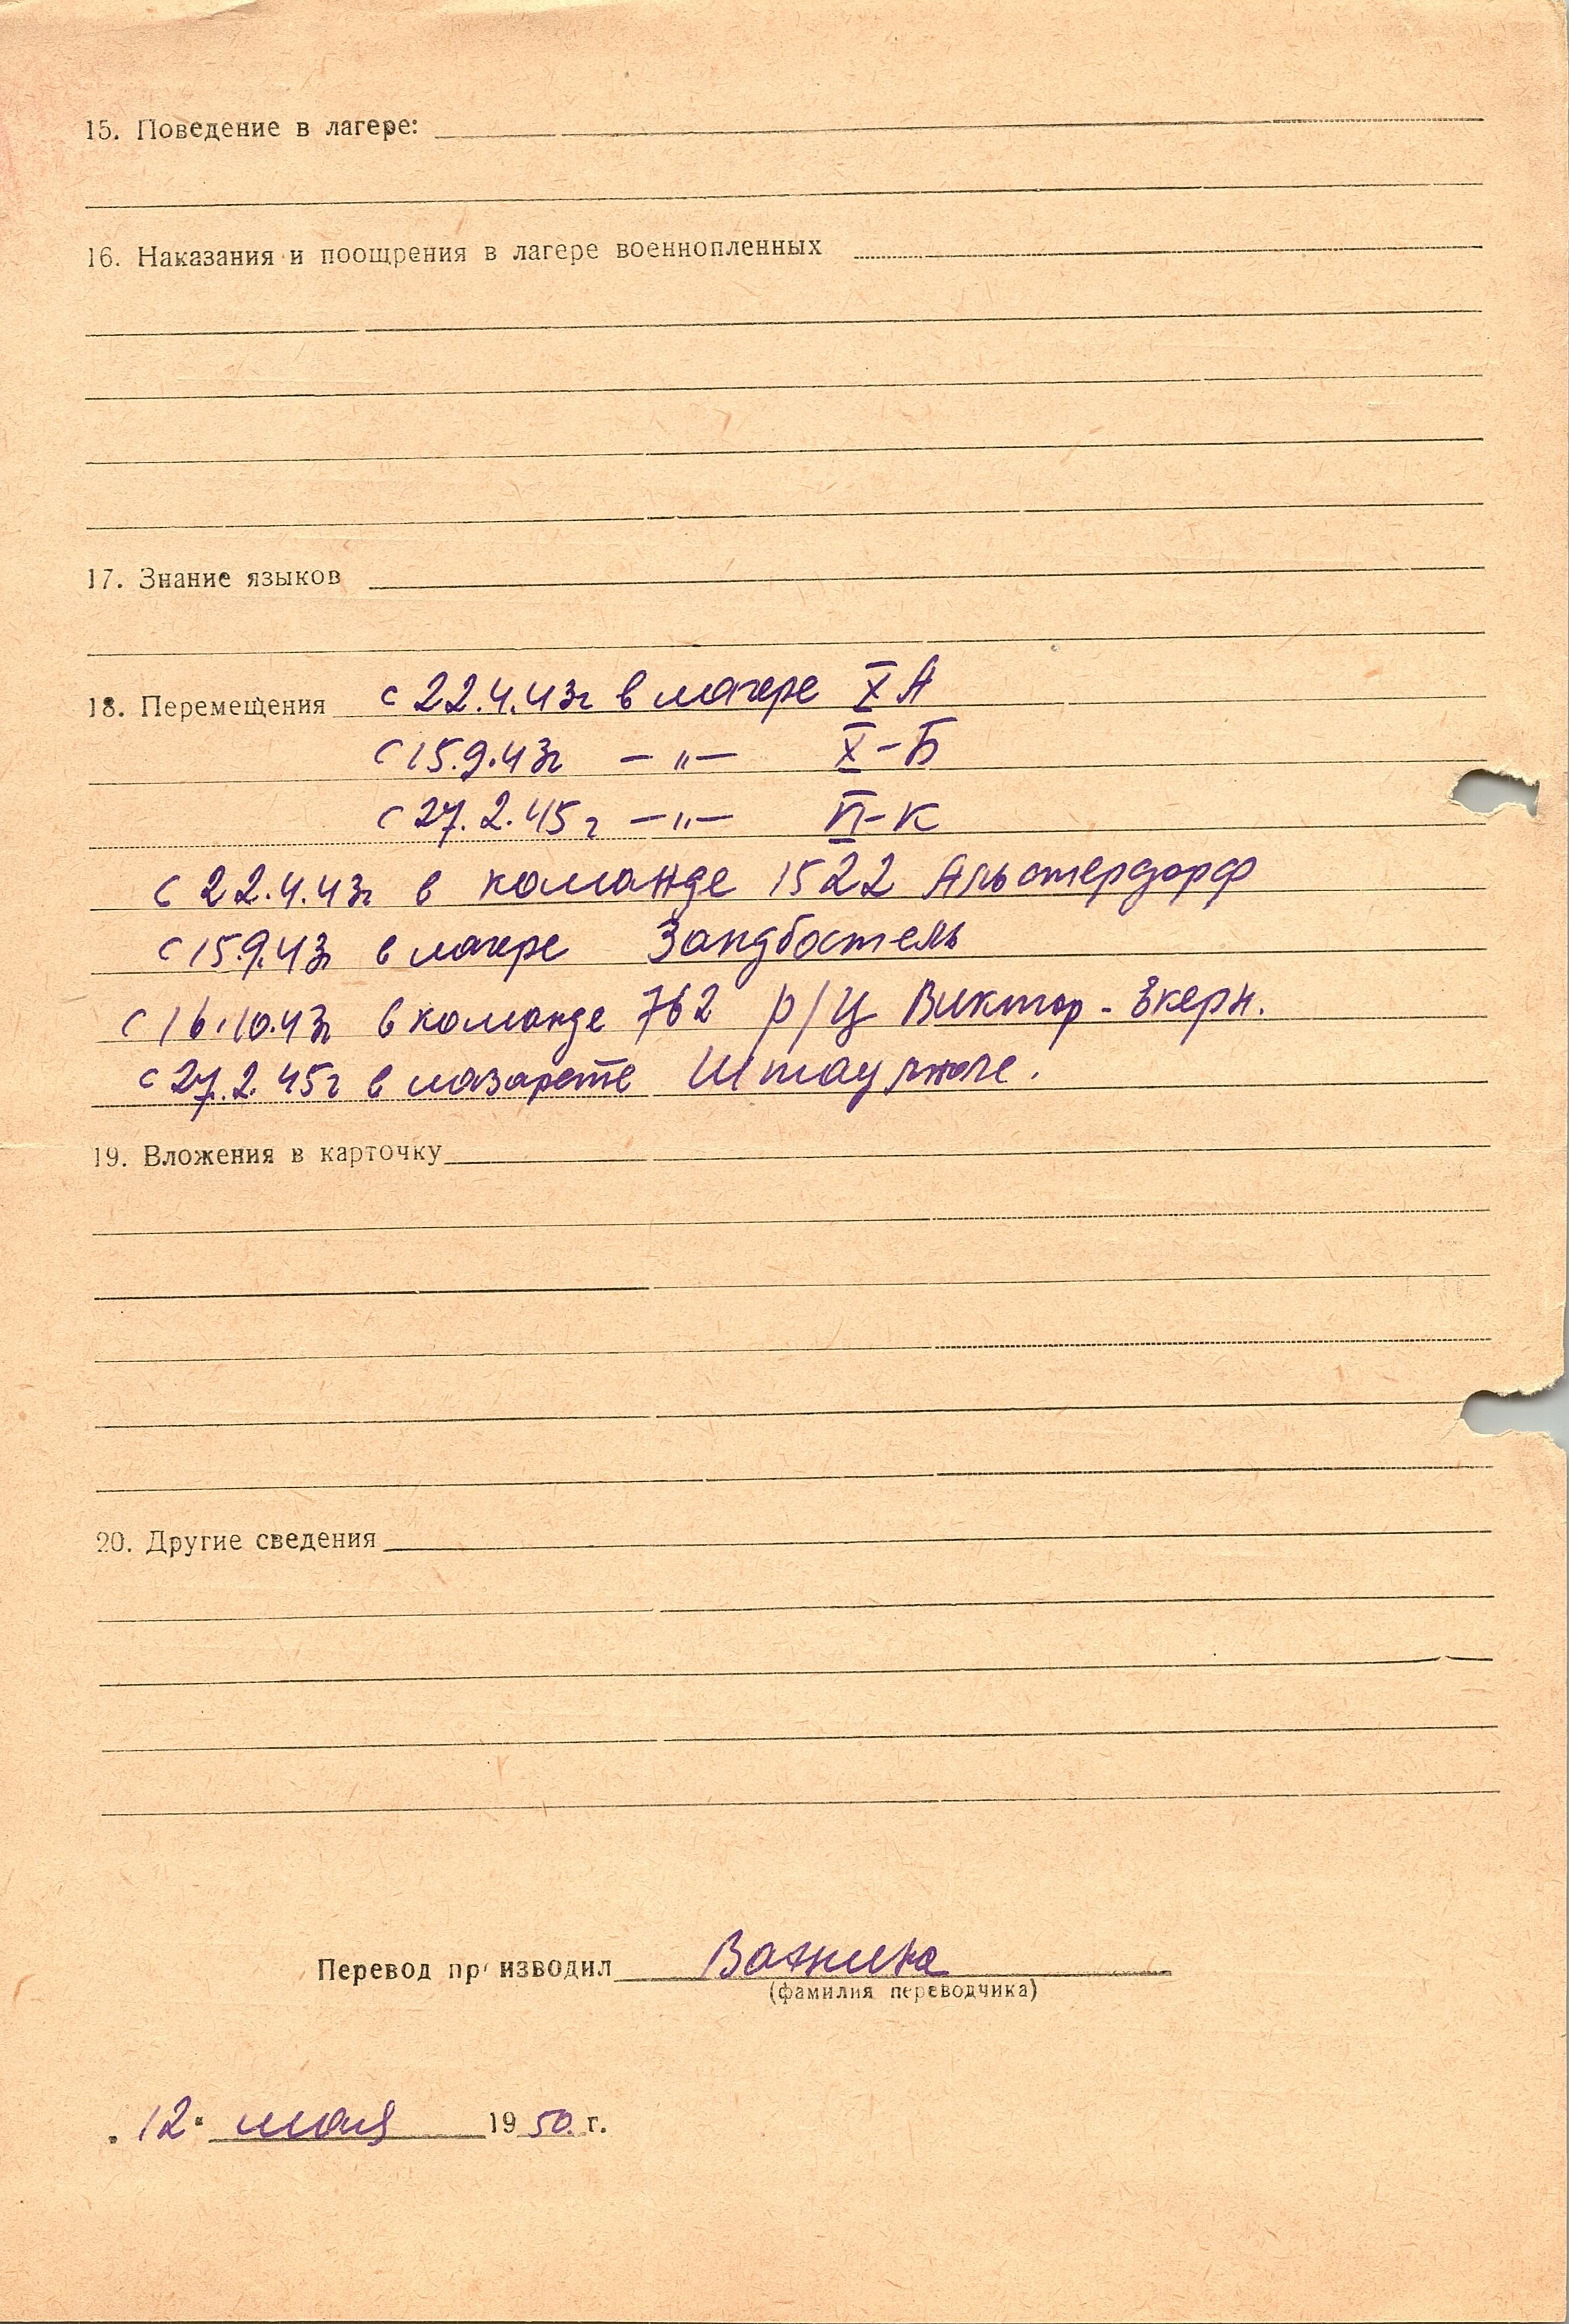 15. Поведение в лагере:
16. Наказания и поощрения в лагере военнопленных
17. Знание языков
18. Перемещения с 22.4.43г в лагере X А
с 15.9.43г — „ — X-Б
с 27.2.45г — „ — -К
с 22.4.43г в команде 1522 Альстердорф
с 15.9.43г в лагере Зандбостель
с 16.10.43г в команде 762 р/ц Виктор - Экерн.
с 27.2.45г в лазарете
19. Вложения в карточку
20. Другие сведения
Перевод пр изводил Важина
(фамилия переводчика)
„12" мая 1950 г.